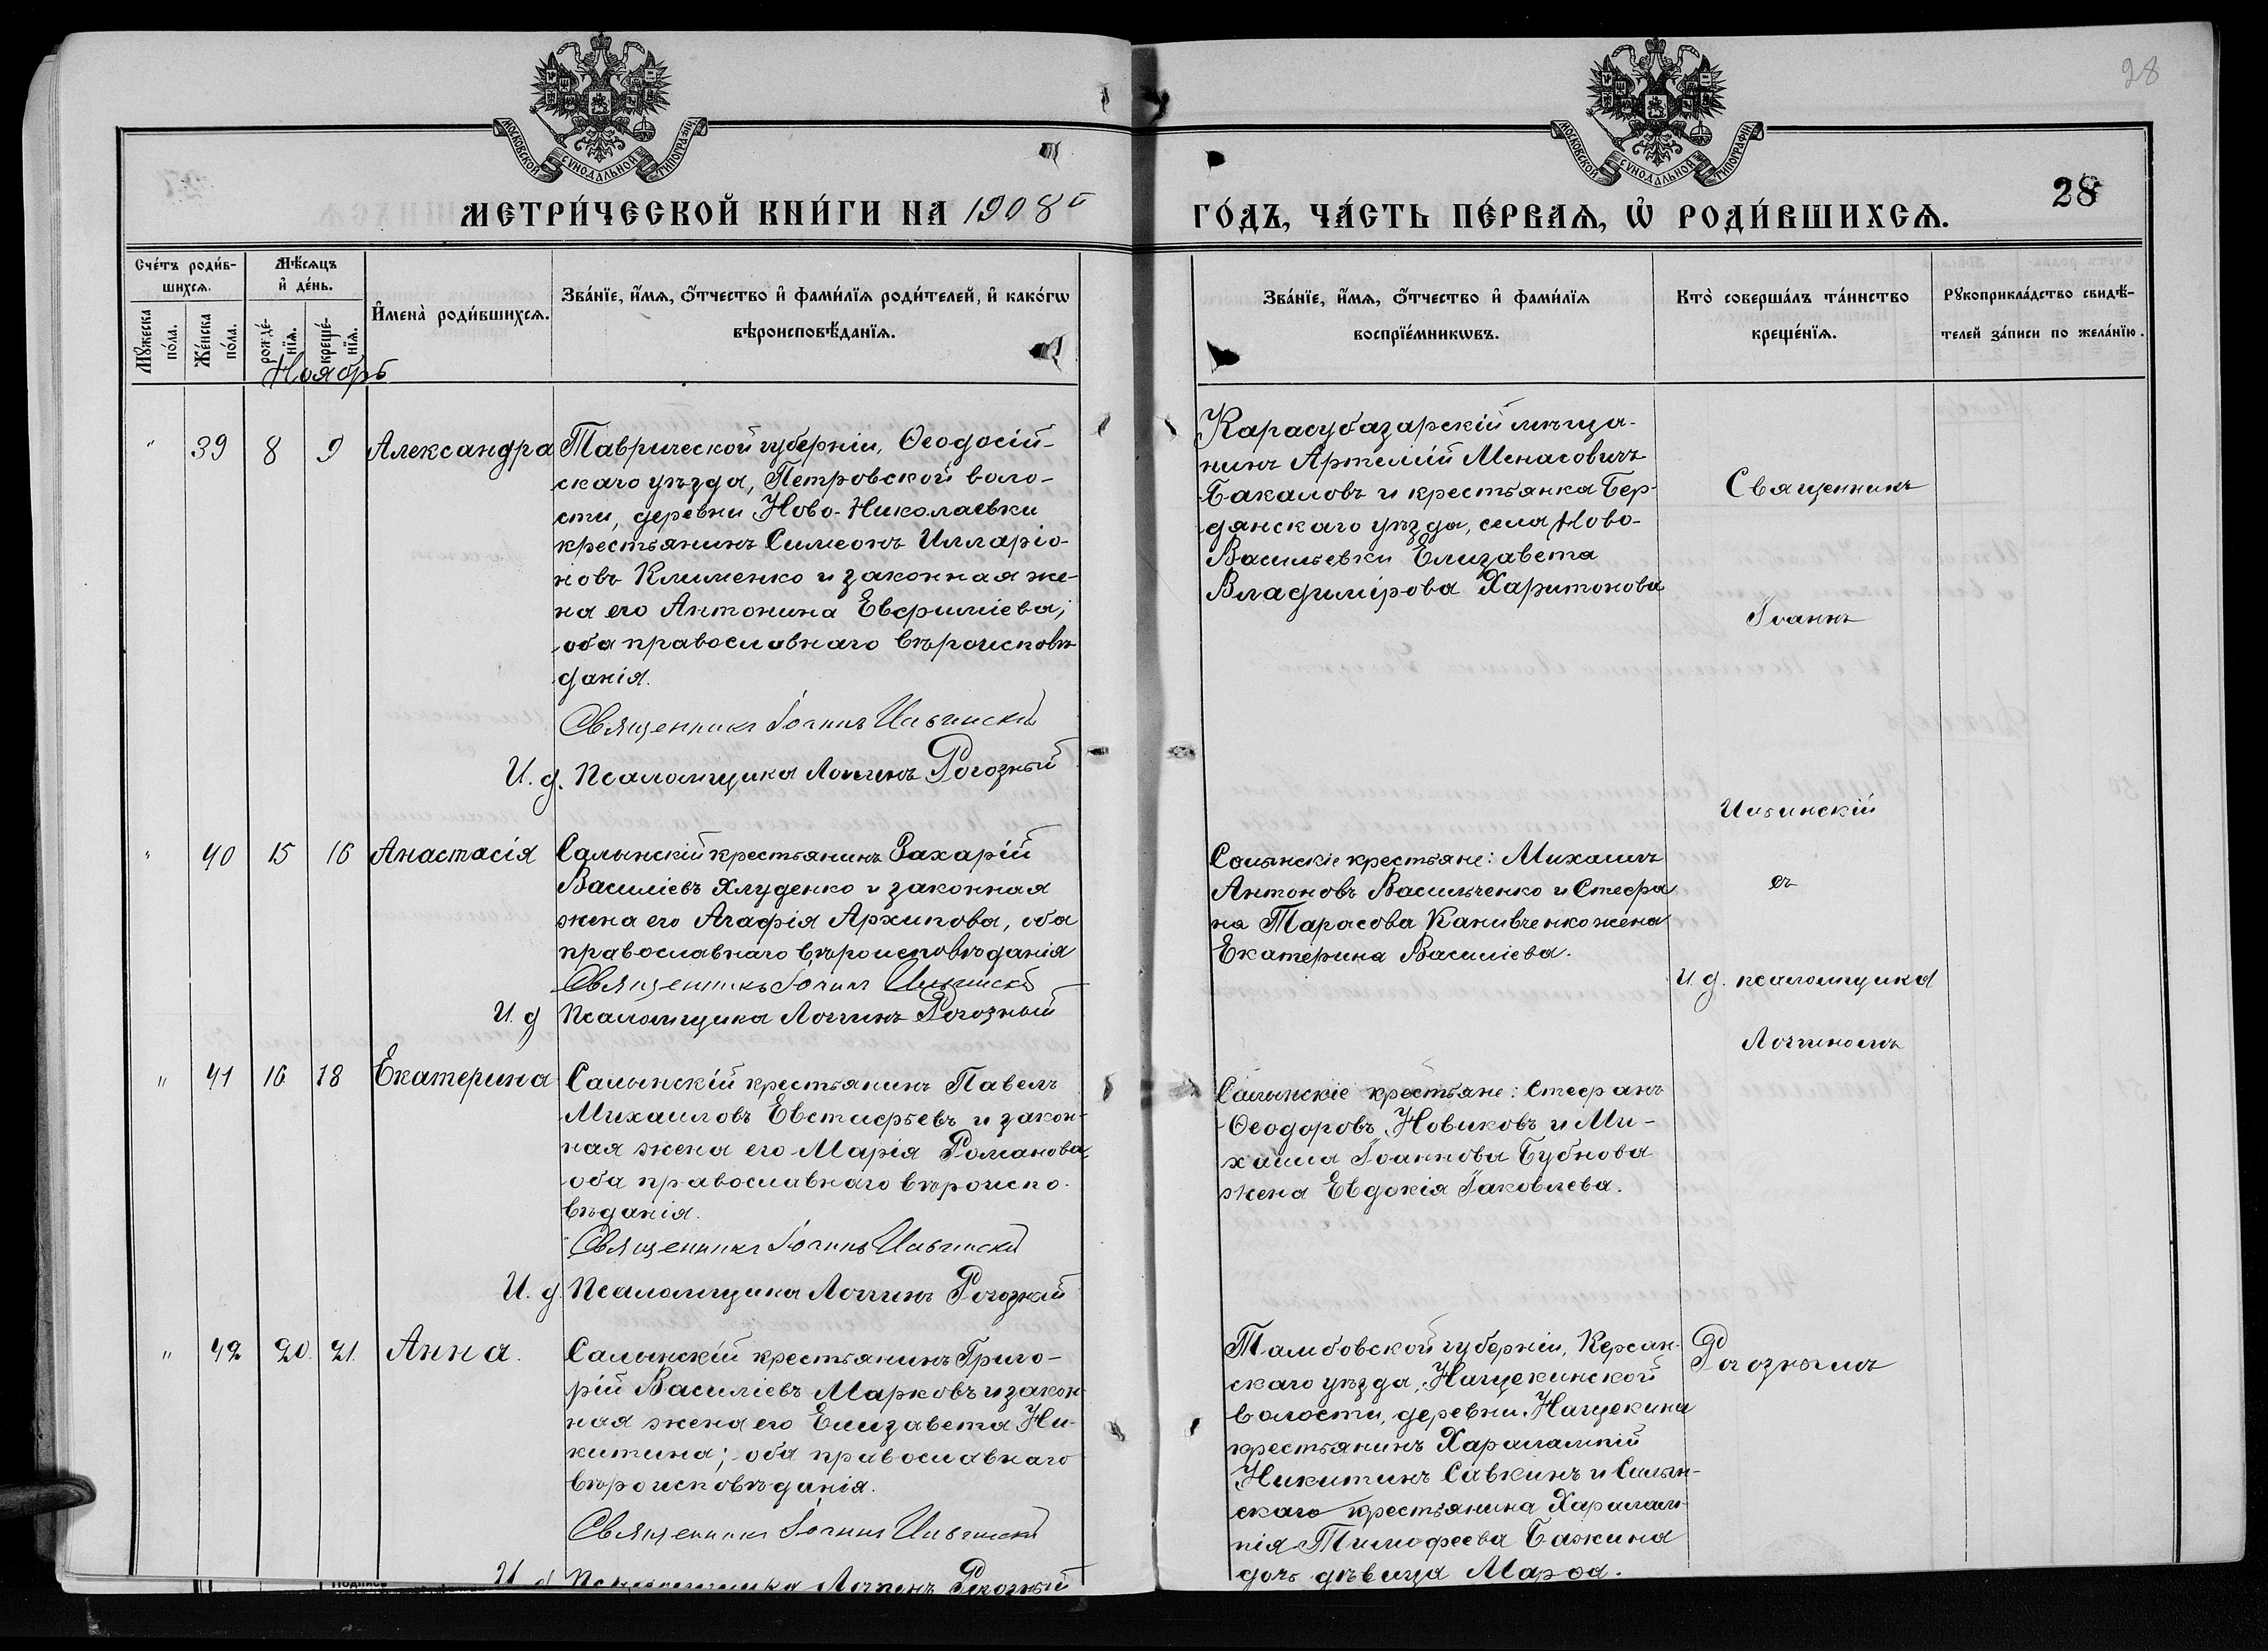 28
МОСКОВСКОЙ СѴНОДАЛЬНОЙ ТИПОГРАФІИ
МОСКОВСКОЙ СѴНОДАЛЬНОЙ ТИПОГРАФІИ
МЕТРИ́ЧЕСКОЙ КНИ́ГИ НА 1908 й
ГО́ДЪ, ЧА́СТЬ ПЕ́РВАѦ, Ѡ҆ РОДИ́ВШИХСѦ.
28
Сче́тъ роди́в-
шихсѧ.
Мꙋ́жеска
по́ла.
Же́нска
по́ла.
Мѣ́сѧцъ
и҆ де́нь.
рожде́-
нїѧ.
креще́-
нїѧ.
И҆мена̀ роди́вшихсѧ.
Зва́нїе, и҆́мѧ, ѻ҆́тчество и҆ фами́лїѧ роди́телей, и҆ како́гѡ
вѣроисповѣ́данїѧ.
Зва́нїе, и҆́мѧ, ѻ҆́тчество и҆ фами́лїѧ
воспрїе́мникѡвъ.
Кто̀ соверша́лъ та́инство
креще́нїѧ.
Рꙋкоприкла́дство свидѣ́-
телей за́писи по жела́нїю.
Ноябрь
" 39 8 9 Александра
Таврической губерніи, Ѳеодосій-
скаго уѣзда, Петровской воло-
сти, деревни Ново-Николаевки
крестьянинъ Симеонъ Илларіо-
новъ Клименко и законная же-
на его Антонина Евфиміева;
оба православнаго вѣроисповѣ-
данія.
Священникъ Іоаннъ Ильинскій
И. д. Псаломщика Логгинъ Рогозный
Карасубазарскій мѣща-
нинъ Артемій Менасовичъ
Бакаловъ и крестьянка Бер-
дянскаго уѣзда, села Ново-
Васильевки Елизавета
Владимірова Харитонова
Священникъ
Іоаннъ
Ильинскій
съ
И. д. псаломщика
Логгиномъ
Рогознымъ
" 40 15 16 Анастасія
Салынскій крестьянинъ Захарій
Василіевъ Хлуденко и законная
жена его Агафія Архипова, оба
православнаго вѣроисповѣданія
Священникъ Іоаннъ Ильинскій
И. д Псаломщика Логгинъ Рогозный
Салынскіе крестьяне: Михаилъ
Антоновъ Васильченко и Стефа
на Тарасова Канивченко жена
Екатерина Василіева.
" 41 16 18 Екатерина
Салынскій крестьянинъ Павелъ
Михаиловъ Евстафьевъ и закон-
ная жена его Марія Романова,
оба православнаго вѣроиспо-
вѣданія.
Священникъ Іоаннъ Ильинскій
И. д. Псаломщика Логгинъ Рогозный
Салынскіе крестьяне: Стефанъ
Ѳеодоровъ Новиковъ и Ми-
хаила Іоаннова Бубнова
жена Евдокія Іаковлева.
" 42 20. 21. Анна.
Салынскій крестьянинъ Григо-
рій Василіевъ Марковъ и закон-
ная жена его Елизавета Ни-
китина; оба православнаго
вѣроисповѣданія.
Священникъ Іоаннъ Ильинскій
И д Псаломщика Логгинъ Рогозный
Тамбовской губерніи, Керсан-
скаго уѣзда, Нащекинской
волости, деревни Нащекина
крестьянинъ Харалампій
Никитинъ Савкинъ и Салын-
скаго крестьянина Харалам-
пія Тимофеева Бажина
дочь дѣвица Марѳа.